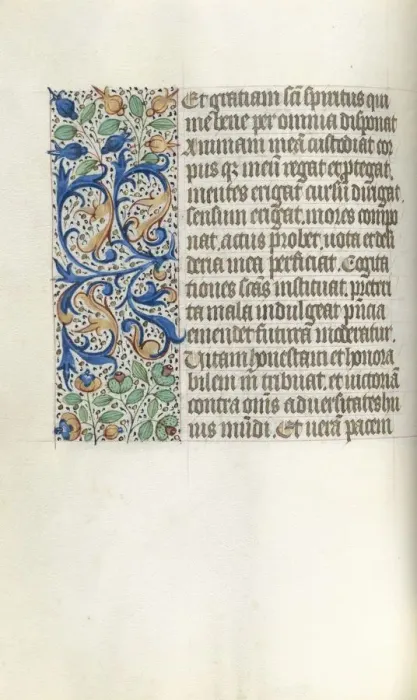 Et gratiam scī spiritus qui
me bene per omnia disponat
Animam meā custodiat cor
pus qꝫ meū regat et protegat,
mentes erigat cursū dirigat.
sensum erigat, mores compo
nat, actus probet, uota et desi
deria mea perficiat. Cogita
tiones scās instituat, preteri
ta mala indulgeat p̄ncia
emendet futura moderatur.
Uitam honestam et honora
bilem m tribuat, et uictoriā
contra om̄is aduersitates hu
ius mūdi. Et uerā pacem